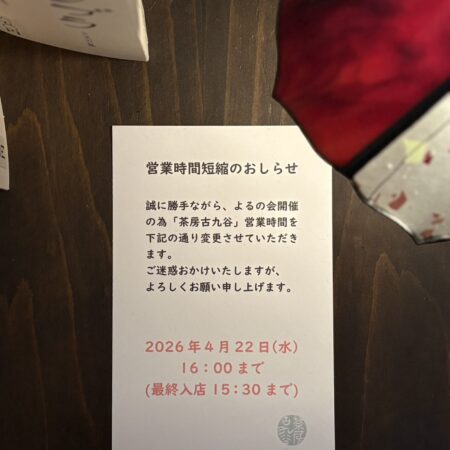 営業時間短縮のおしらせ
誠に勝手ながら、よるの会開催
の為「茶房古九谷」営業時間を
下記の通り変更させていただき
ます。
ご迷惑おかけいたしますが、
よろしくお願い申し上げます。
2026年4月22日(水)
16:00まで
(最終入店15:30まで)